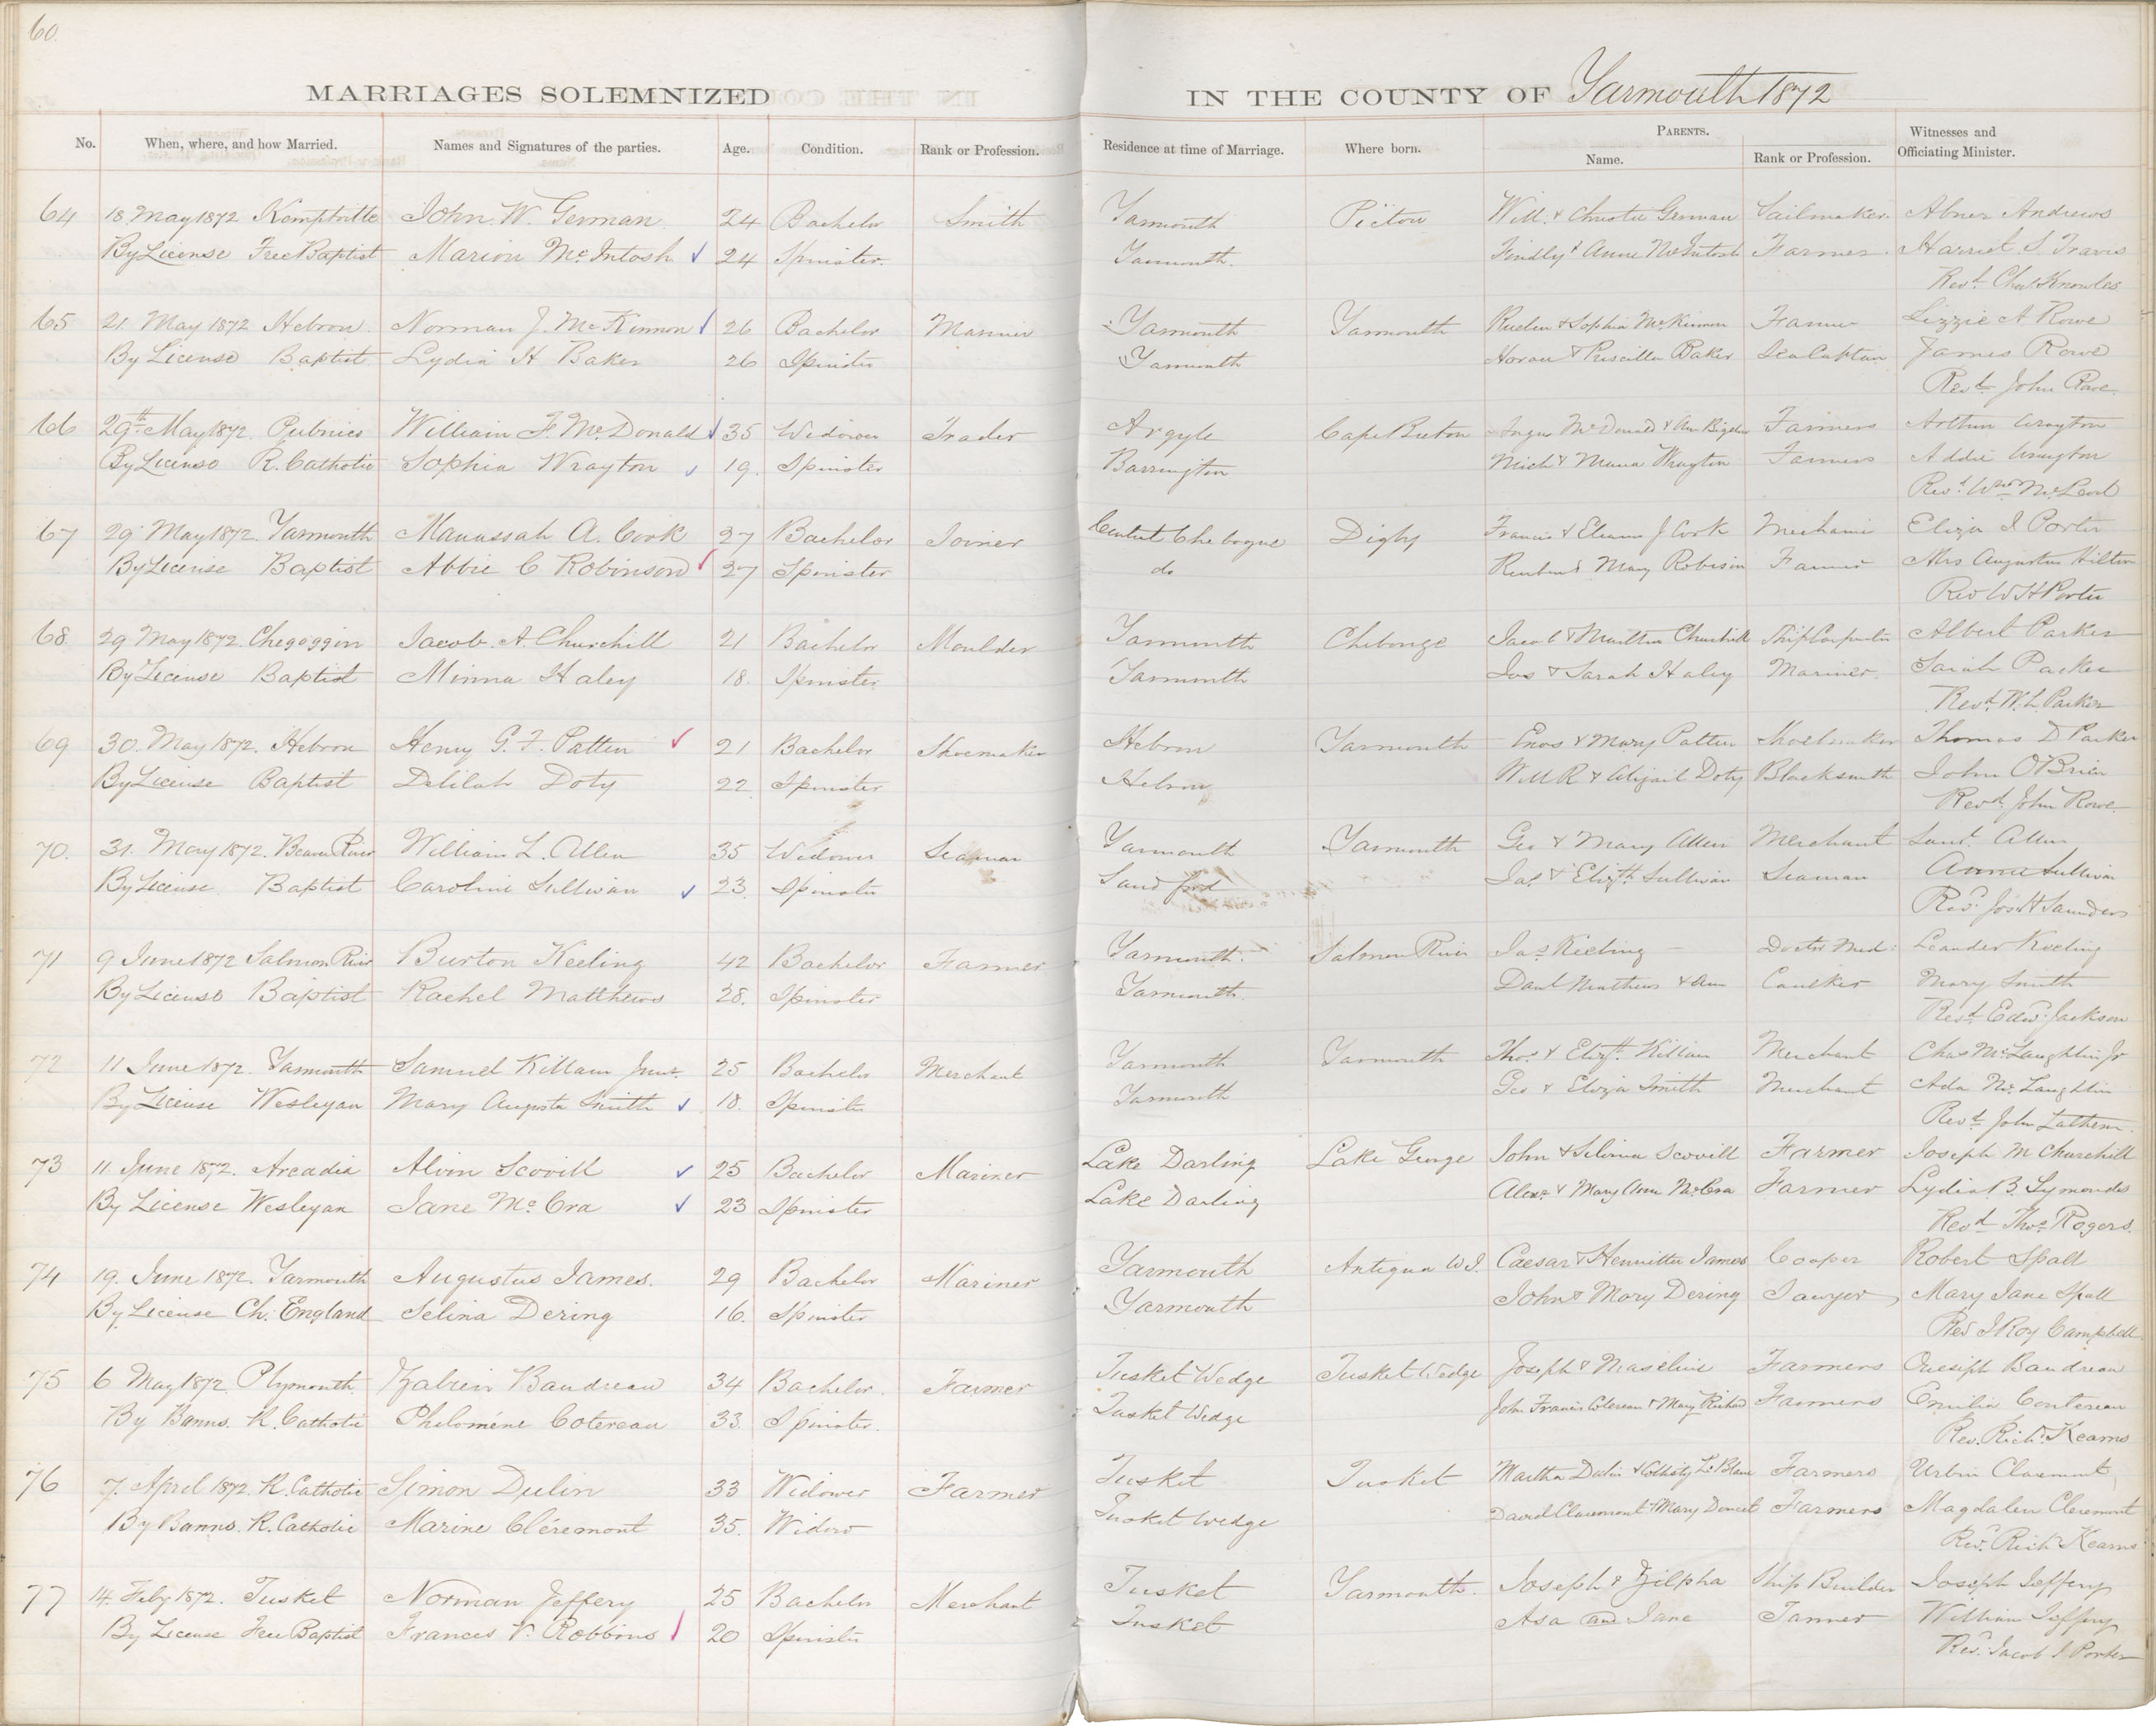 60.
MARRIAGES SOLEMNIZED IN THE COUNTY OF Yarmouth 1872
No. When, where, and how Married. Names and Signatures of the parties. Age. Condition. Rank or Profession. Residence at time of Marriage. Where born. PARENTS. Name. Rank or Profession. Witnesses and Officiating Minister.
64 18 May 1872 Kemptville John W. German 24 Bachelor Smith Yarmouth Pictou Will. & Christie German Sailmaker Abner Andrews
By License Free Baptist Marion McIntosh 24 Spinster Yarmouth. Findly & Anne McIntosh Farmer Harriet S. Travis
Revd. Chas Knowles
65 21. May 1872 Hebron Norman J. McKinnon 26 Bachelor Mariner Yarmouth Yarmouth & Sophia McKinnon Farmer Lizzie A Rowe
By License Baptist Lydia H Baker 26 Spinster Yarmouth & Priscilla Baker Sea Captain James Rowe
Revd. John Rowe
66 29th May 1872. Pubnico William F. McDonald 35 Widower Trader Argyle Cape Breton Angus McDonald & Farmers Arthur Wrayton
By License R. Catholic Sophia Wrayton 19. Spinster Barrington Mich & Maria Wrayton Farmers Addie Wrayton
Revd. Wm McLeod
67 29 May 1872. Yarmouth Manassah A. Cook 27 Bachelor Joiner Chebogue Digby Francis & Eleanor J Cook Mechanic Eliza I Porter
By License Baptist Abbie C Robinson 27 Spinster do Reuben & Mary Robison Farmer Mrs Augustus Hilton
Rev W H Porter
68. 29 May 1872. Chegoggin Jacob. A. Churchill 21 Bachelor Moulder Yarmouth Chebouge Jacob & Martha Churchill Ship Carpenter Albert Parker
By License Baptist Minna Haley 18. Spinster Yarmouth Jos & Sarah Haley Mariner. Sarah Parker
Revd. W. L. Parker
69 30. May 1872. Hebron Henry G. F. Patten 21 Bachelor Shoemaker Hebron Yarmouth Enos & Mary Patten Shoemaker Thomas D Parker
By License Baptist Delilah Doty 22 Spinster Hebron Will R & Abijail Doty Blacksmith John O'Brien
Revd. John Rowe
70. 31. May 1872. Beaver River William L. Allen 35 Widower Seaman Yarmouth Yarmouth Geo & Mary Allen Merchant Allen
By License Baptist Caroline Sullivan 23. Spinster Sandford Jas. & Elizth Sullivan Seaman Anna Sullivan
Revd. Jos H Saunders
71 9 June 1872 Salmon River Burton Keeling 42 Bachelor Farmer Yarmouth. Salmon River Jas Keeling Doctor Med: Leander Keeling
By License Baptist Rachel Matthews 28. Spinster Yarmouth. Danl Mathews & Ann Caulker Mary Smith
Revd. Edwd. Jackson
72 11 June 1872. Yarmouth Samuel Killam Junr. 25 Bachelor Merchant Yarmouth Yarmouth Thos. & Elizth. Killam Merchant Chas McLaughlin Jr
By License Wesleyan Mary Augusta Smith 18. Spinster Yarmouth Geo & Eliza Smith Merchant Ada McLaughlin
Revd. John Lathern.
73 11. June 1872. Arcadia Alvin Scovill 25 Bachelor Mariner Lake Darling Lake George John & Selina Scovill Farmer Joseph M Churchill
By License Wesleyan Jane McCra 23 Spinster Lake Darling Alexr. & Mary Ann McCra Farmer Lydia B. Symonds
Revd Thos. Rogers.
74 19. June 1872. Yarmouth Augustus James. 29 Bachelor Mariner Yarmouth Antigua W I. Caesar & Henrietta James Cooper Robert Spall
By License Ch. England Selina Dering 16. Spinster Yarmouth John & Mary Dering Sawyer Mary Jane Spall
Rev J Roy Campbell
75 6 May 1872 Plymouth Zabrein Baudreau 34 Bachelor. Farmer Tusket Wedge Tusket Wedge Joseph & Maseline Farmers Onesiph Baudreau
By Banns. R. Catholic Philoméne Cotereau 33. Spinster. Tusket Wedge John Francis Cotereau & Mary Richard Farmers Emilia Contereau
Rev. Richd. Kearns
76 7. April 1872. R. Catholic Simon Dulin 33 Widower Farmer Tusket Tusket Martha Dulin & LeBlanc Farmers Urbin Claremont
By Banns. R. Catholic Marine Cléremont 35. Widow Tusket Wedge David Claremont & Mary Doucet Farmers Magdalen Cleremont
Revd. Richd Kearns
77 14. Feby 1872. Tusket Norman Jeffery 25 Bachelor Merchant Tusket Yarmouth. Joseph & Zilpha Ship Builder Joseph Jeffery
By License Free Baptist Frances V. Robbins 20 Spinster Tusket Asa and Jane Tanner William Jeffery
Revd. Jacob I Porter